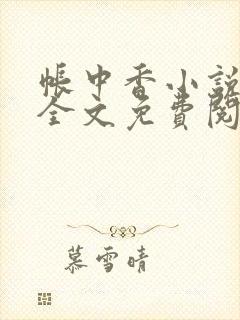 帐中香小説
全文免費閱
慕雪晴